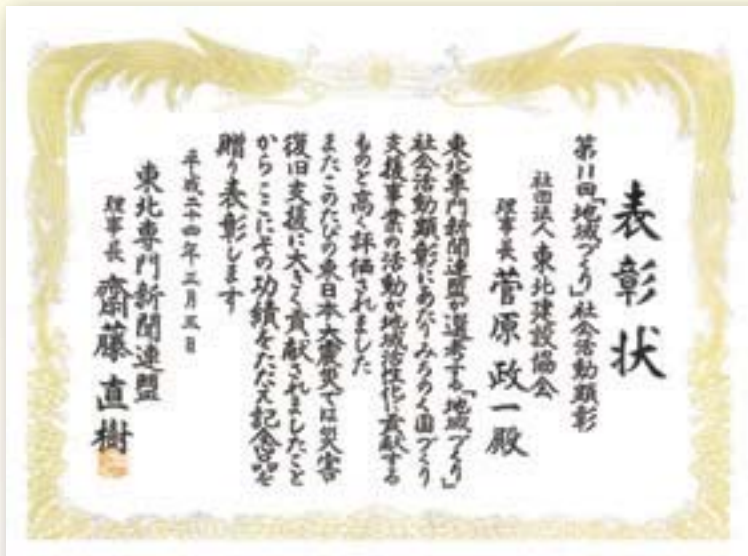 表彰状
第11回「地域づくり」社会活動顕彰
社団法人東北建設協会
理事長 菅原政一殿
東北専門新聞連盟が選考する「地域づくり」
社会活動顕彰にあたりみちのく国づくり
支援事業の活動が地域活性化に貢献する
ものと高く評価されました
またこのたびの東日本大震災では災害
復旧支援に大きく貢献されましたこと
からここにその功績をたたえ記念品を
贈り表彰します
平成二十四年三月五日
東北専門新聞連盟
理事長 齋藤直樹